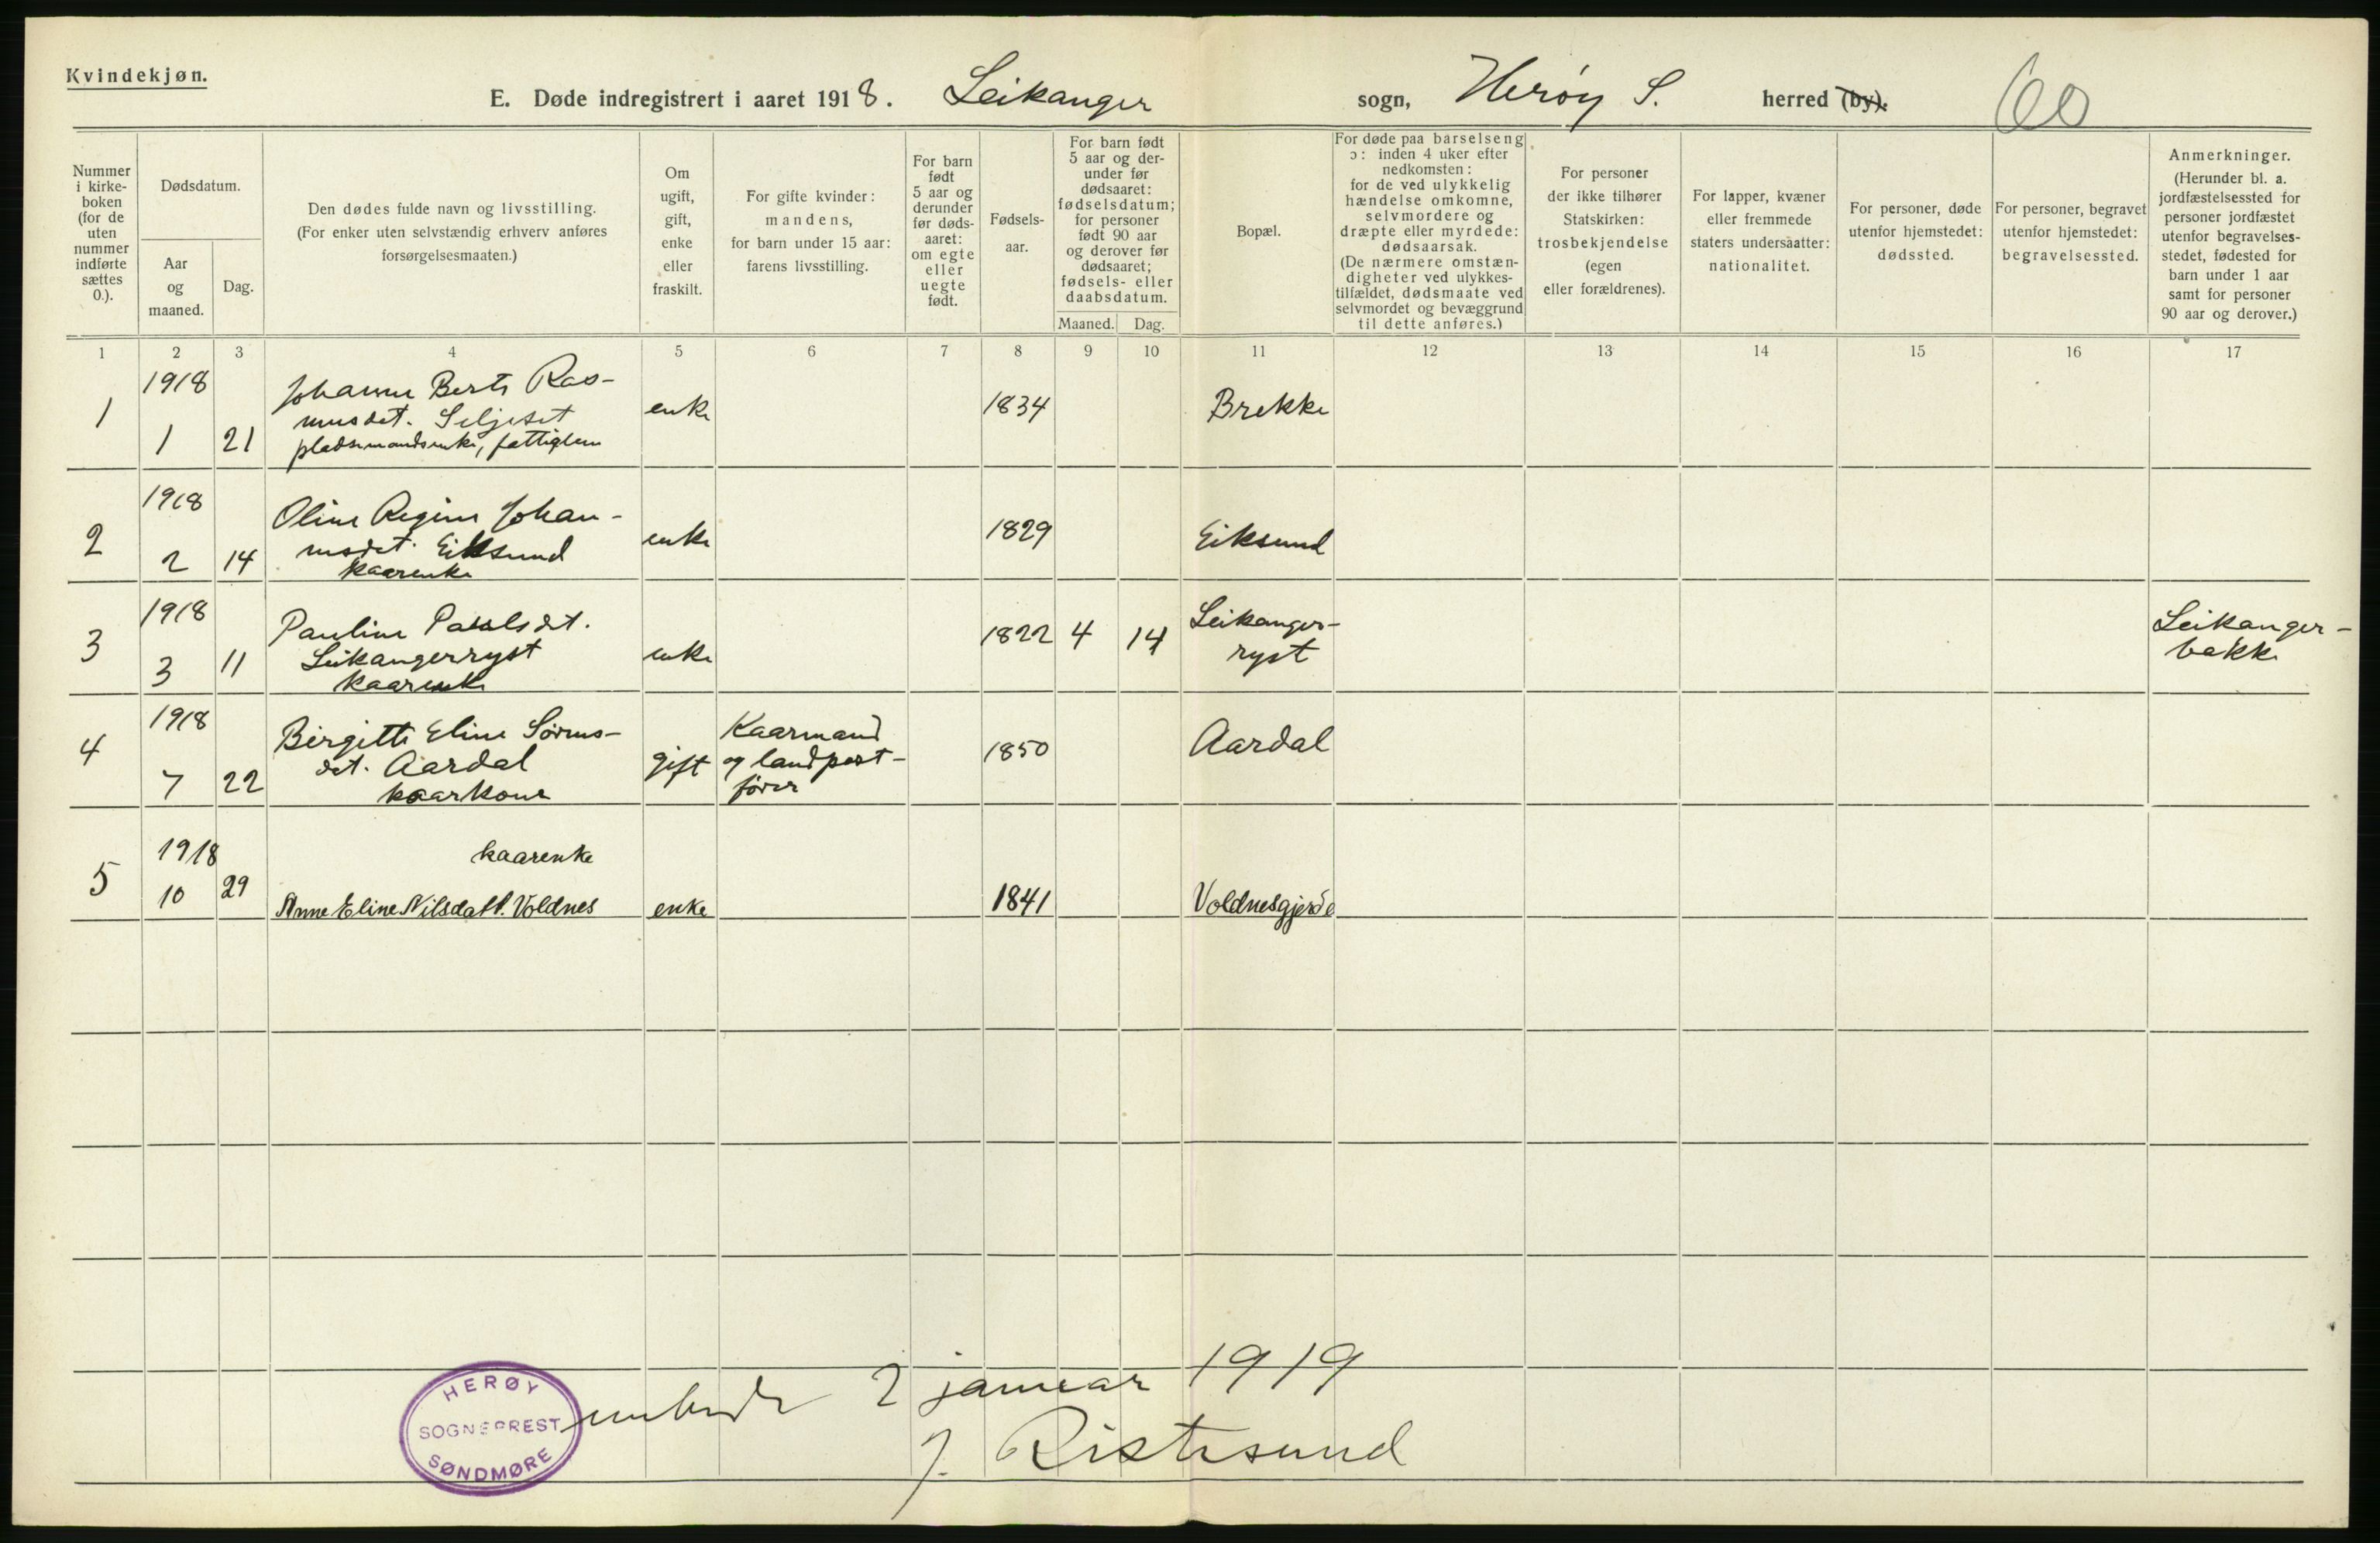 Kvindekjøn.
E. Døde indregistrert i aaret 1918. Leikanger sogn, Herøy S. herred (by). 60
Nummer
i kirke-
boken
(for de
uten
nummer
indførte
sættes
0.).
Dødsdatum.
Aar
og
maaned.
Dag.
Den dødes fulde navn og livsstilling.
(For enker uten selvstændig erhverv anføres
forsørgelsesmaaten.)
Om
ugift,
gift,
enke
eller
fraskilt.
For gifte kvinder:
mandens,
for barn under 15 aar:
farens livsstilling.
For barn
født
5 aar og
derunder
før døds-
aaret:
om egte
eller
uegte
født.
Fødsels-
aar.
For barn født
5 aar og der-
under før
dødsaaret:
fødselsdatum;
for personer
født 90 aar
og derover før
dødsaaret;
fødsels- eller
daabsdatum.
Maaned. Dag.
Bopæl.
For døde paa barselseng
ɔ: inden 4 uker efter
nedkomsten:
for de ved ulykkelig
hændelse omkomne,
selvmordere og
dræpte eller myrdede:
dødsaarsak.
(De nærmere omstæn-
digheter ved ulykkes-
tilfældet, dødsmaate ved
selvmordet og bevæggrund
til dette anføres.)
For personer
der ikke tilhører
Statskirken:
trosbekjendelse
(egen
eller forældrenes).
For lapper, kvæner
eller fremmede
staters undersaatter:
nationalitet.
For personer, døde
utenfor hjemstedet:
dødssted.
For personer, begravet
utenfor hjemstedet:
begravelsessted.
Anmerkninger.
(Herunder bl. a.
jordfæstelsessted for
personer jordfæstet
utenfor begravelses-
stedet, fødested for
barn under 1 aar
samt for personer
90 aar og derover.)
1 2 3 4 5 6 7 8 9 10 11 12 13 14 15 16 17
1918 Johanne Berte Ras-
1 musdat. Seljeset enke 1834 Brekke
1 21 pladsmandsenke, fattiglem
1918 Oline Regine Johan-
2 nesdat. Eiksund enke 1829 Eiksund
2 14 kaarenke
1918 Pauline Paalsdat. 1822 4 14 Leikanger- Leikanger-
3 Leikangerryst enke ryst bakke
3 11 kaarenke
1918 Birgitte Eline Sørens- Kaarmand
4 dat. Aardal gift og landpost- 1850 Aardal
7 22 kaarkone fører
1918 kaarenke
5 10 29 Anne Eline Nilsdatt. Voldnes enke 1841 Voldnesgjerde
HERØY
SOGNEPREST
SØNDMØRE
2 januar 1919
J. Ristesund